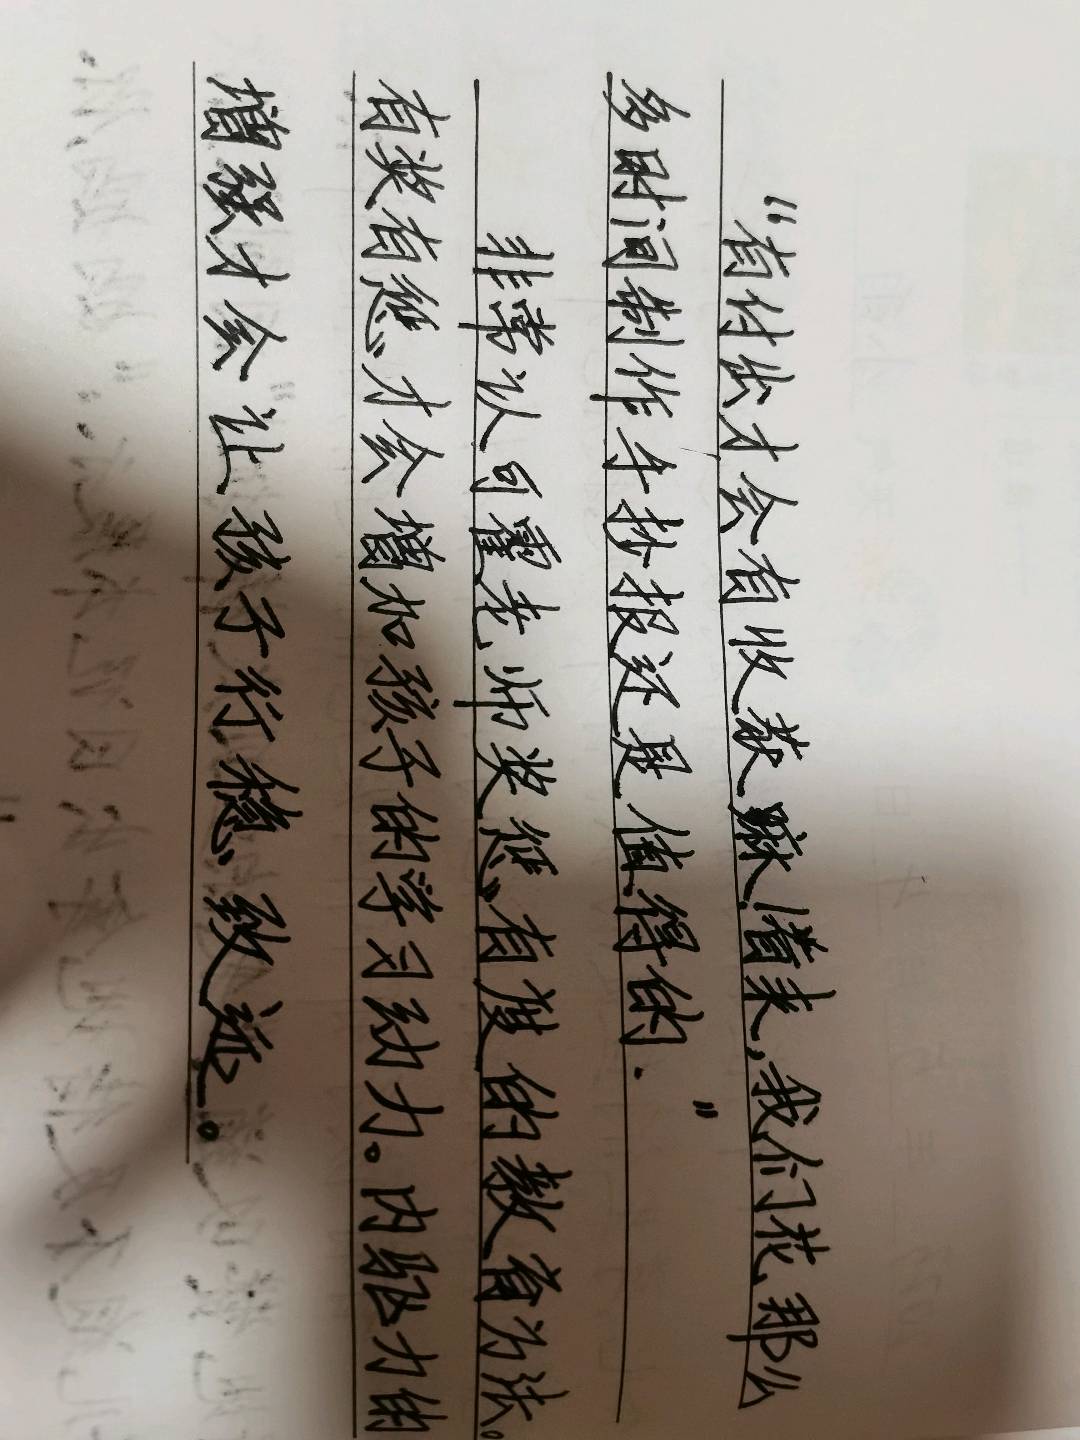 “有付出才会有收获嘛！看来，我们花那么
多时间制作手抄报还是值得的.”
非常认可霍老师奖惩有度的教育方法。
有奖有惩才会增加孩子的学习动力。内驱力的
增强才会让孩子行稳致远。